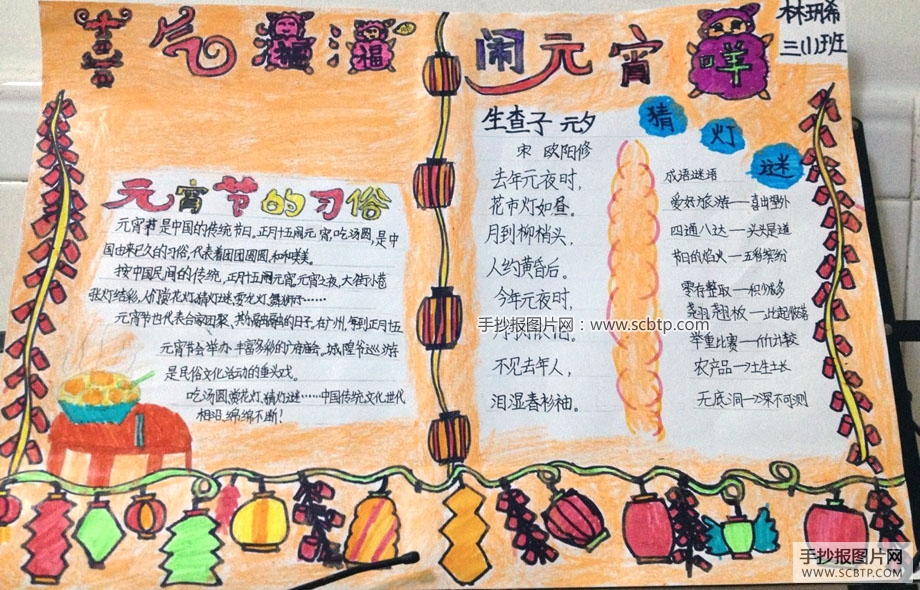 喜气洋洋
福
福
闹元宵
羊
林珊希
三(1)班
元宵节的习俗
元宵节是中国的传统节日。正月十五闹元宵,吃汤圆,是中
国由来已久的习俗,代表着团团圆圆,和和美美。
按中国民间的传统,正月十五闹元宵,元宵之夜,大街小巷
张灯结彩,人们赏花灯,猜灯谜,耍龙灯,舞狮子……
元宵节也代表合家团聚、其乐融融的日子,在广州,每到正月五
元宵节会举办丰富多彩的广府庙会。城隍爷巡游
是民俗文化活动的重头戏。
吃汤圆,赏花灯,猜灯谜……中国传统文化世代
相沿,绵绵不断!
生查子 元夕
宋 欧阳修
去年元夜时,
花市灯如昼。
月到柳梢头,
人约黄昏后。
今年元夜时,
不见去年人,
泪湿春衫袖。
猜灯谜
成语谜语
爱好旅游—喜出望外
四通八达—头头是道
节日的焰火—五彩缤纷
零存整取—积少成多
—此起彼落
举重比赛—斤斤计较
农产品—土生土长
无底洞—深不可测
手抄报图片网:www.scbtp.com
手抄报图片网
WWW.SCBTP.COM